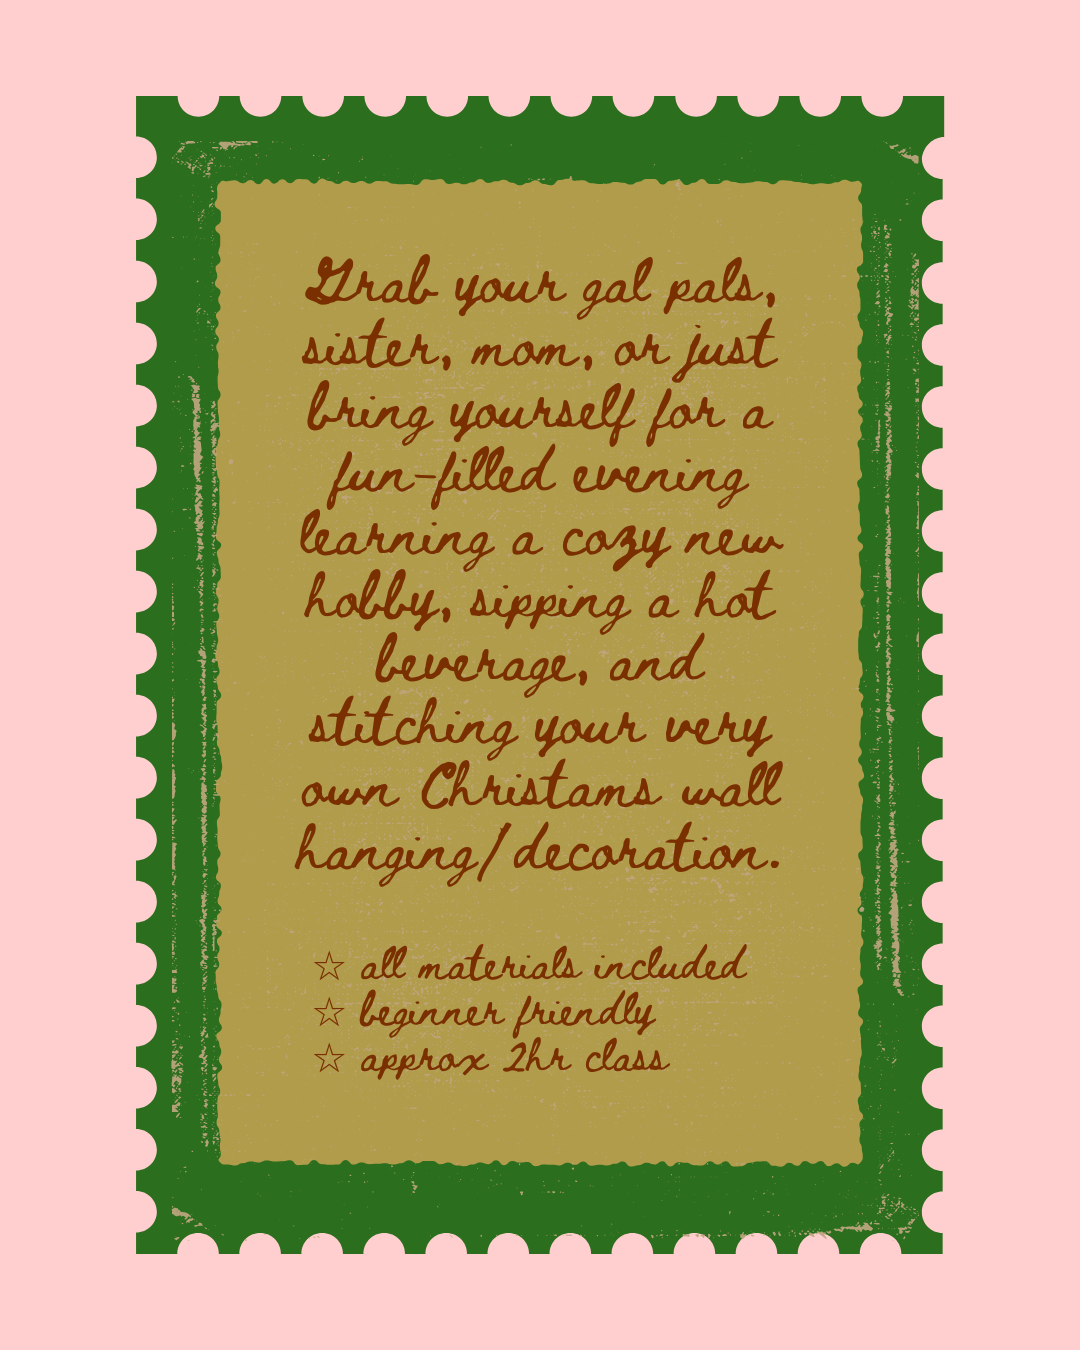 Grab your gal pals,
sister, mom, or just
bring yourself for a
fun-filled evening
learning a cozy new
hobby, sipping a hot
beverage, and
stitching your very
own Christams wall
hanging/decoration.
☆ all materials included
☆ beginner friendly
☆ approx 2hr class